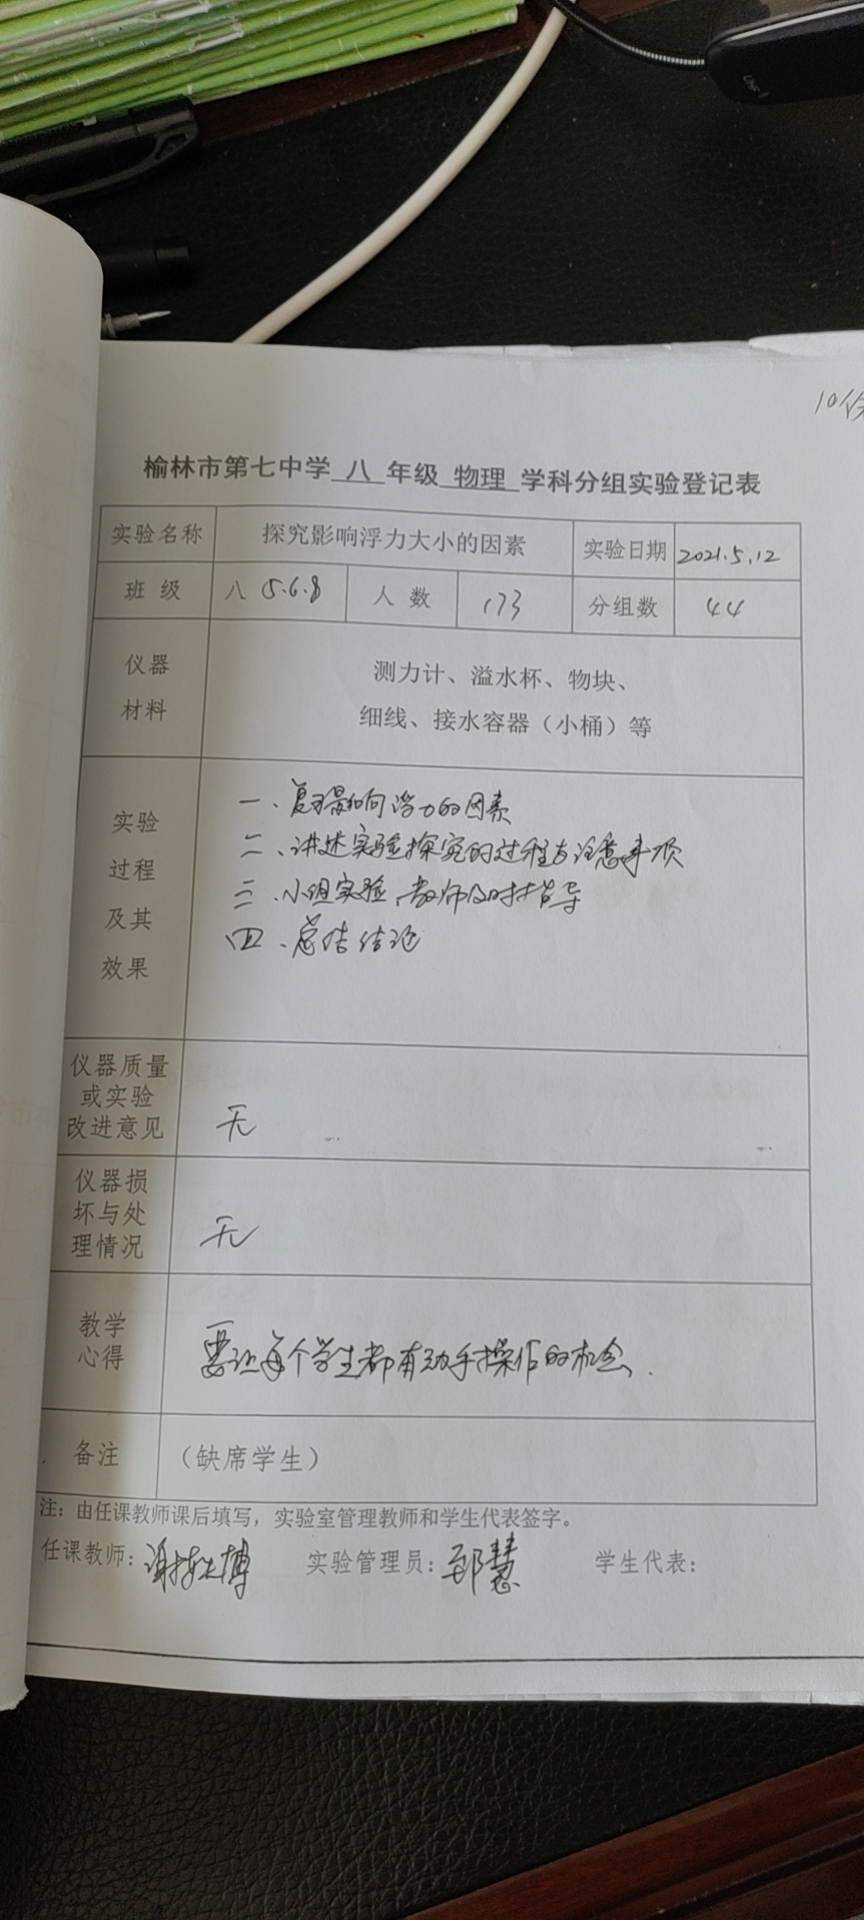 10份
榆林市第七中学 八 年级 物理 学科分组实验登记表
实验名称 探究影响浮力大小的因素 实验日期 2021.5.12
班 级 八 5.6.8 人 数 173 分组数 44
仪器
材料
测力计、溢水杯、物块、
细线、接水容器（小桶）等
实验
过程
及其
效果
一、复习影响浮力的因素
二、讲述实验探究的过程与注意事项
三、小组实验、教师及时指导
四、总结结论
仪器质量
或实验
改进意见
无
仪器损
坏与处
理情况
无
教学
心得
要让每个学生都有动手操作的机会.
备注 （缺席学生）
注：由任课教师课后填写，实验室管理教师和学生代表签字。
任课教师： 实验管理员： 学生代表：